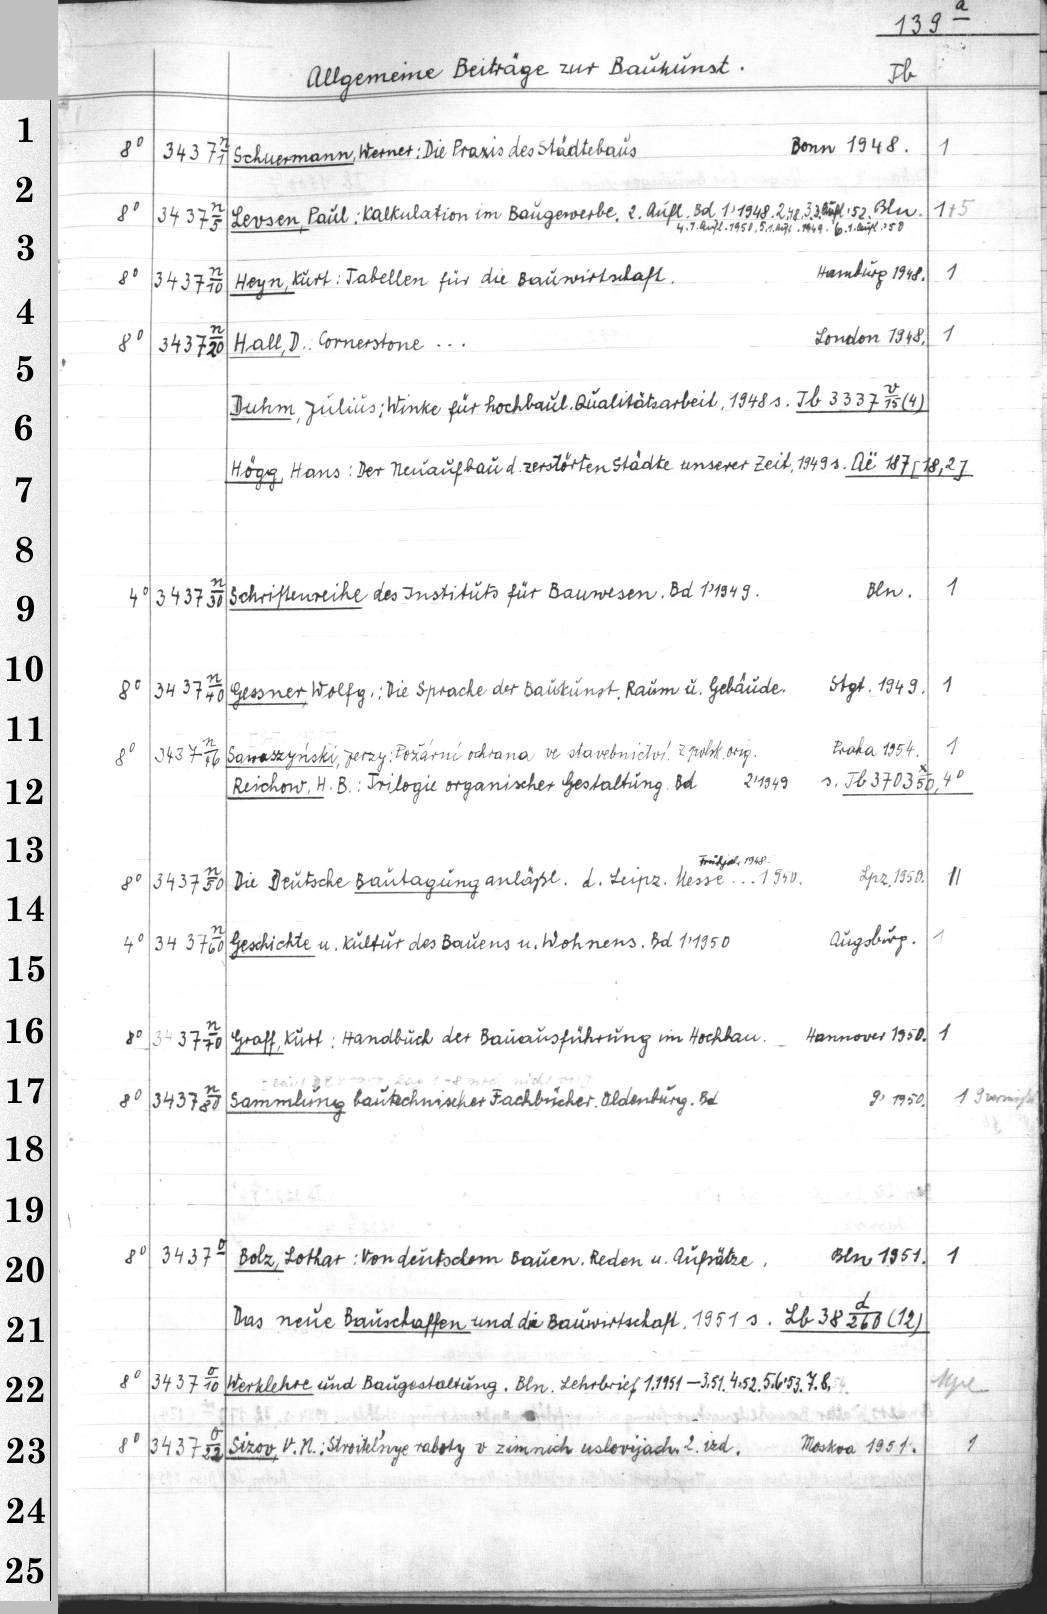 139 a
Allgemeine Beiträge zur Baukunst. Tb
1 8° 3437 n/1 Schuermann, Werner: Die Praxis des Städtebaus Bonn 1948. 1
2 8° 3437 n/5 Levsen, Paul: Kalkulation im Baugewerbe. 2. Aufl. Bd 1, 1948. 2, 48. 3, 3. Aufl. 52. Bln. 1+5
4. 1. Aufl. 1950. 5. 1. Aufl. 1949. 6. 1. Aufl. 50
3 8° 3437 n/10 Heyn, Kurt: Tabellen für die Bauwirtschaft. Hamburg 1948. 1
4 8° 3437 n/20 Hall, D.: Cornerstone ... London 1948. 1
5
6 Duhm, Julius: Winke für hochbaul. Qualitätsarbeit, 1948 s. Tb 3337 v/15 (4)
7 Högg, Hans: Der Neuaufbau d. zerstörten Städte unserer Zeit, 1949 s. Aë 187 [18,2]
8
9 4° 3437 n/30 Schriftenreihe des Instituts für Bauwesen. Bd 1, 1949. Bln. 1
10 8° 3437 n/40 Gessner, Wolfg.: Die Sprache der Baukunst, Raum u. Gebäude. Stgt. 1949. 1
11 8° 3437 n/46 Sawaszyński, Jerzy: Požární ochrana ve stavebnictví. Z polsk. orig. Praha 1954. 1
12 Reichow, H. B.: Trilogie organischer Gestaltung. Bd 2, 1949 s. Tb 3703 x/50, 4°
13 Frühjah. 1948.
8° 3437 n/50 Die Deutsche Bautagung anläßl. d. Leipz. Messe ... 1950. Lpz. 1950. II
14
15 4° 3437 n/60 Geschichte u. Kultur des Bauens u. Wohnens. Bd 1, 1950 Augsburg. 1
16 8° 3437 n/70 Graff, Kurt: Handbuch der Bauausführung im Hochbau. Hannover 1950. 1
17 8° 3437 n/80 Sammlung bautechnischer Fachbücher. Oldenburg. Bd 9, 1950. 1
18
19
20 8° 3437 o Bolz, Lothar: Von deutschem Bauen. Reden u. Aufsätze. Bln 1951. 1
21 Das neue Bauschaffen und die Bauwirtschaft, 1951 s. Lb 38 d/260 (12)
22 8° 3437 o/10 Werklehre und Baugestaltung. Bln. Lehrbrief 1. 1951 – 3, 51. 4, 52. 5. 6, 53. 7. 8, 54.
23 8° 3437 o/22 Sizov, V. N.: Stroitel'nye raboty v zimnich uslovijach. 2. izd. Moskva 1951. 1
24
25